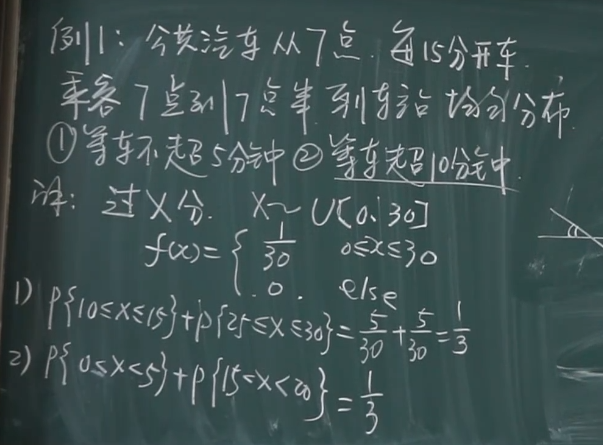 例1：公共汽车从7点.每15分开车.
乘客7点到7点半到车站均匀分布.
①等车不超5分钟②等车超10分钟.
解：过X分. X~U[0,30]
f(x)={ 1/30 0≤x≤30
0. else
1) P{10≤X≤15}+P{25≤X≤30}=5/30+5/30=1/3
2) P{0≤X<5}+P{15<X<20}=1/3